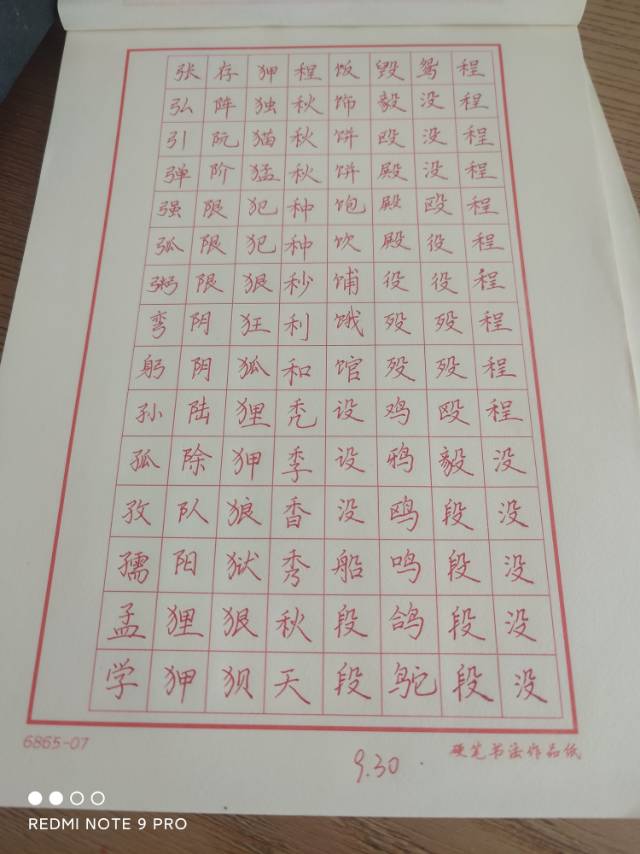 张存狎程饭毁鸳程
弘阵独秋饰毅没程
引阮猫秋饼殴没程
弹阶猛秋饼殿没程
强限犯种饱殿殴程
弧限犯种饮殿役程
粥限狠秒馆役役程
弯阴狂利饿殁殁程
躬阴狐和馆殁殁程
孙陆狸秃设鸡殴程
孤除狎季设鸦毅没
孜队狼香没鸥段没
孺阳狱秀船鸣段没
孟狸狠秋段鸽段没
学狎狈天段鸵段没
6865-07
硬笔书法作品纸
9.30
REDMI NOTE 9 PRO